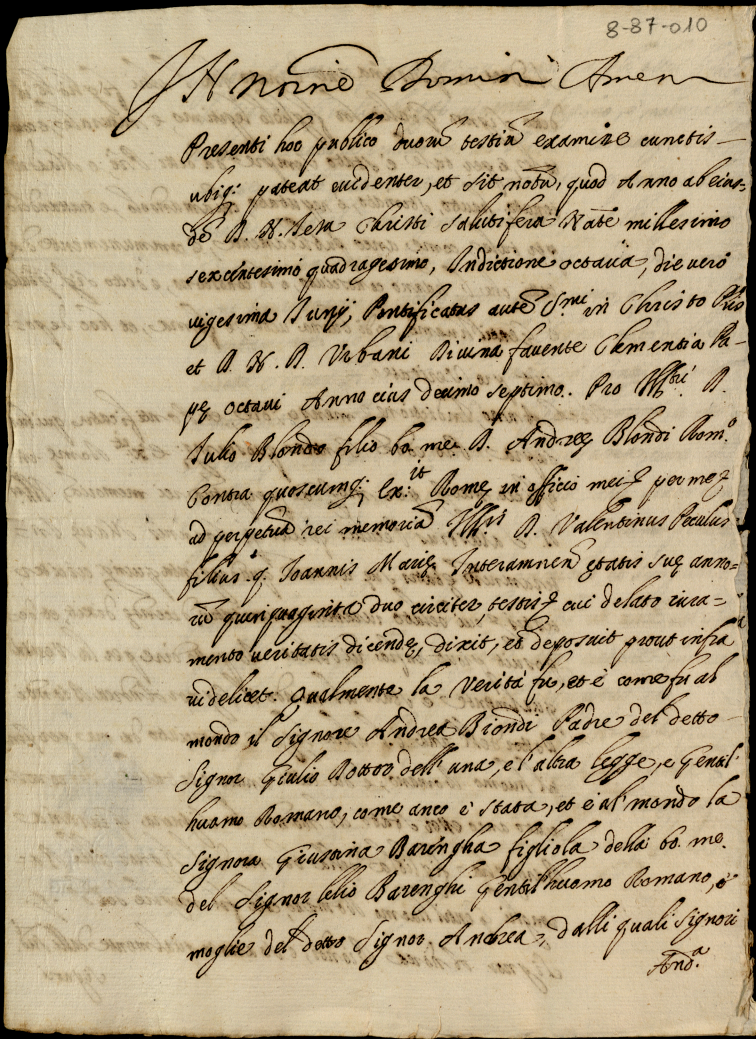 8-87-010
In Noīe Domini Amen
Presenti hoc publico duorū testiū examine cunctis
ubiq; pateat evidenter, et sit notū, quod Anno ab eius-
dē D. N. Jesu Christi salutifera Nāte millesimo
sexcentesimo quadragesimo, Indictione octava, die vero
vigesima Junij, Pontificatus autē S.mi in Christo P̄ris
et D. N. D. Urbani Divina favente Clementia Pa-
pę octavi Anno eius decimo septimo. Pro Ill.tri D.
Julio Blondo filio bo: me: D. Andreę Blondi Rom.o
Contra quoscumq; Ex.it Romę in officio mei per me
ad perpetuā rei memoriā Ill.ris D. Valentinus Peculus
filius q. Joannis Marię Interamnen̄ ętatis suę anno-
rū quinquaginta duo circiter, testis cui delato iura-
mento veritatis dicendę, dixit, et deposuit prout infra
videlicet. Qualmente la verità fu, et è come fu al
mondo il Signore Andrea Biondi Padre del detto
Signor Giulio Dottor dell'una, e l'altra legge, e Gentil'
huomo Romano, come anco è stata, et è al mondo la
Signora Giustina Barengha figliola della bo. me.
del Signor Lelio Barenghi Gentil'huomo Romano, e
moglie del detto Signor Andrea, dalli quali Signori
And.a